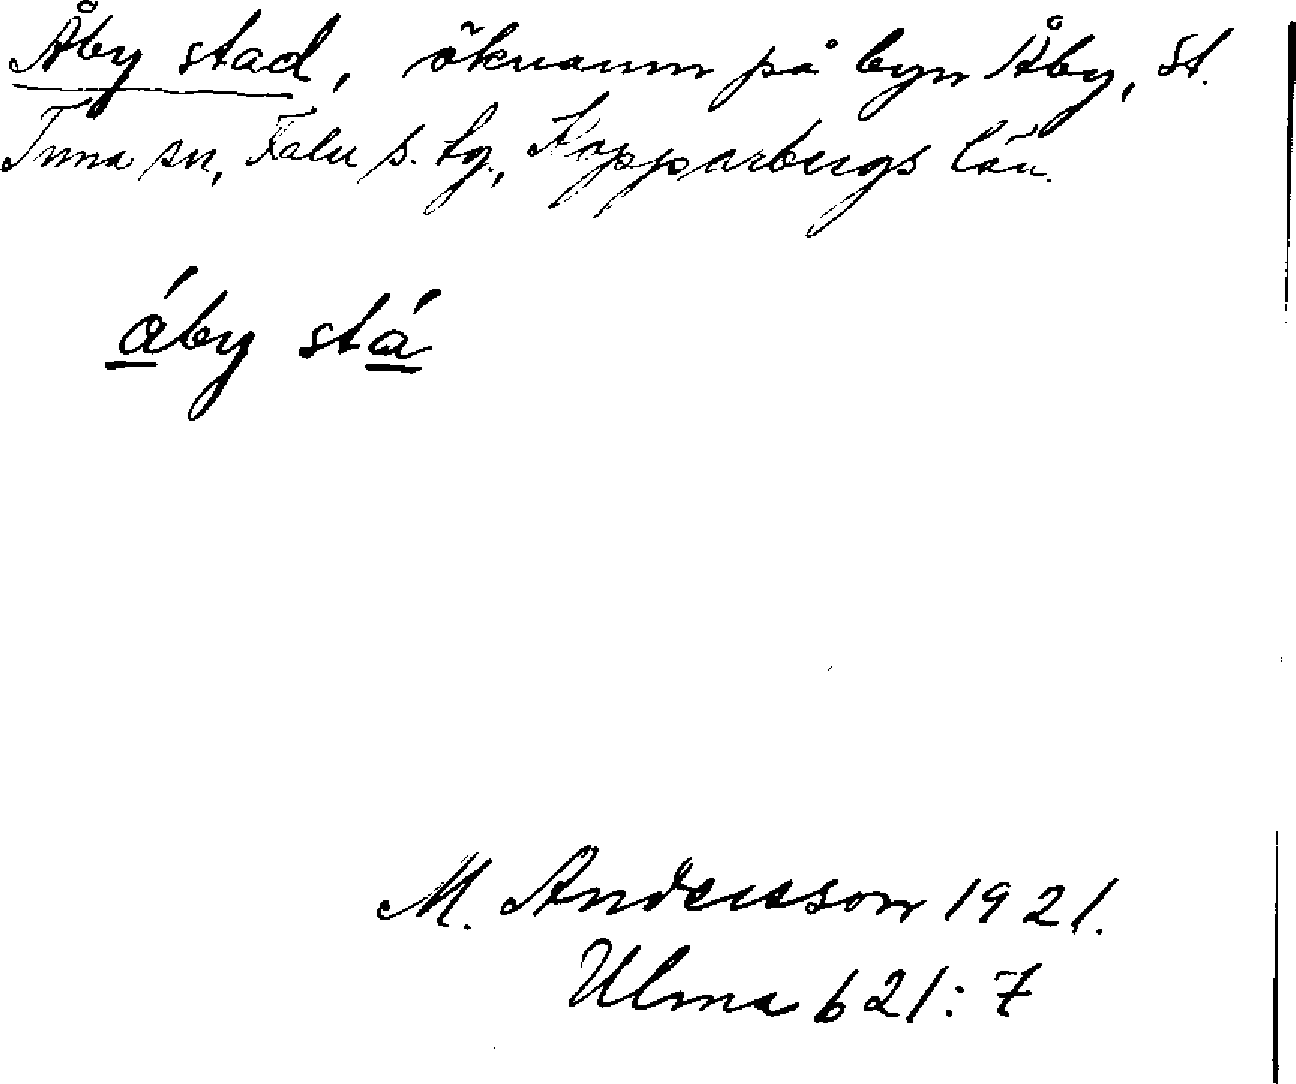 Åby stad, öknamn på byn Åby, St.
Tuna sn, Falu s. tg., Kopparbergs län.
áby stá
M. Andersson 1921.
Ulma 621:7